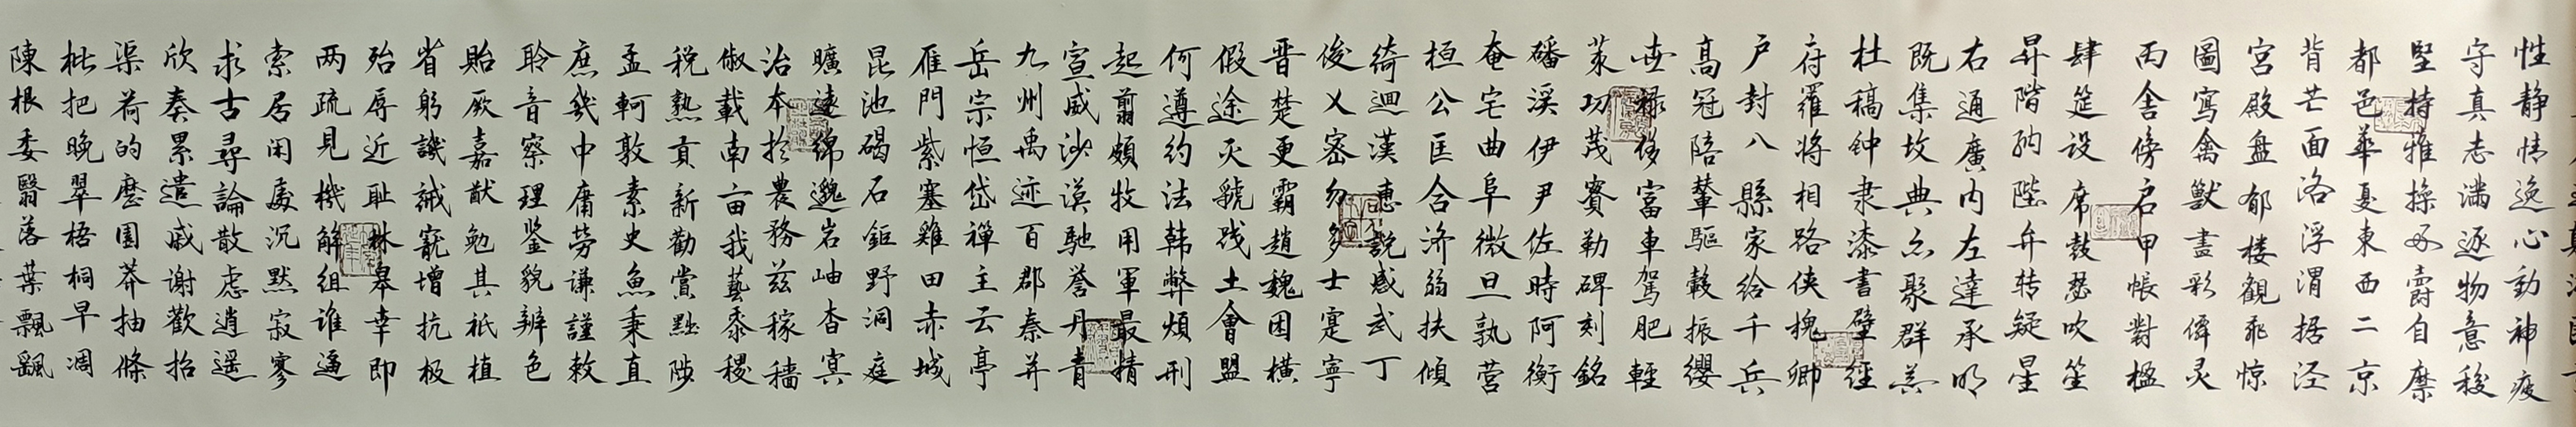 性静情逸心動神疲
守真志满逐物意移
堅持雅操好爵自縻
都邑華夏東西二京
背芒面洛浮渭据泾
宫殿盘郁楼觀飛惊
圖寫禽獸畫彩僊灵
丙舍傍启甲帳對楹
肆筵设席鼓瑟吹笙
昇階纳陛弁转疑星
右通廣内左達承明
既集坟典亦聚群英
杜稿钟隶漆書壁經
府羅将相路侠槐卿
户封八縣家给千兵
高冠陪輦驅轂振纓
世禄侈富車駕肥輕
策功茂實勒碑刻銘
磻溪伊尹佐時阿衡
奄宅曲阜微旦孰营
桓公匡合济弱扶傾
绮迴漢惠説感武丁
俊乂密勿多士寔寧
晋楚更霸趙魏困横
假途灭虢践土會盟
何遵约法韩弊煩刑
起翦頗牧用軍最精
宣威沙漠馳誉丹青
九州禹迹百郡秦并
岳宗恒岱禅主云亭
雁門紫塞雞田赤城
昆池碣石鉅野洞庭
曠遠绵邈岩岫杳冥
治本於農務兹稼穡
俶載南亩我藝黍稷
税熟貢新勸賞黜陟
孟軻敦素史魚秉直
庶幾中庸勞谦謹敕
聆音察理鉴貌辨色
貽厥嘉猷勉其祗植
省躬譏诫寵增抗极
殆辱近耻林皋幸即
两疏見機解组谁逼
索居闲處沉默寂寥
求古尋論散虑逍遥
欣奏累遣慼谢歡招
渠荷的歷園莽抽條
枇杷晚翠梧桐早凋
陳根委翳落葉飄飖